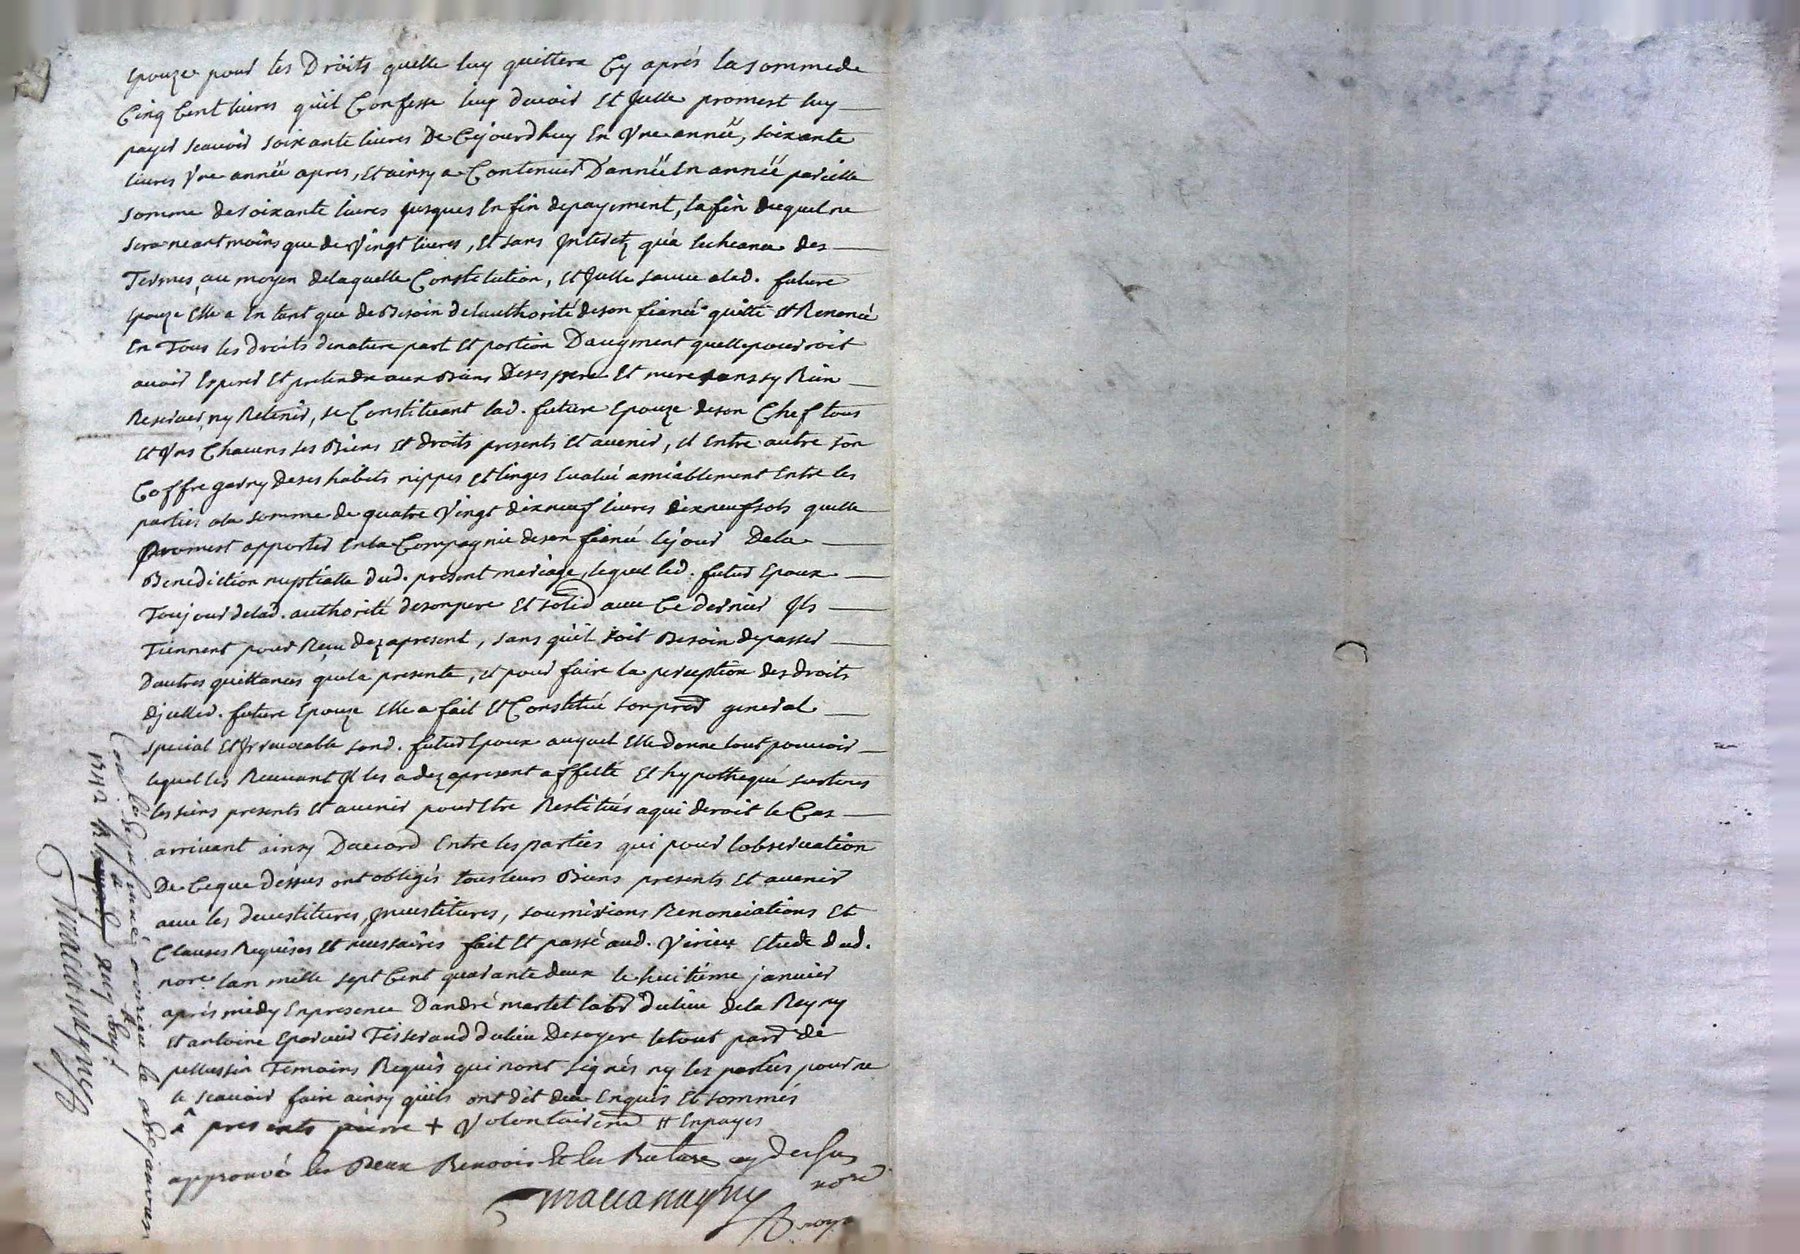 epouze pour les Droits quelle luy quittera Cy aprés la somme de
Cinq Cent livres qu'il Confesse luy devoir et Jcelle promest luy
payer scavoir soixante livres De Cejourdhuy En Vne anneé, soixante
livres Vne anneé apres, Et ainsy a Continuer D'anneé En anneé pareille
somme de soixante livres jusques En fin de payement, la fin duquel ne
sera neantmoins que de Vingt livres, Et sans Jnteretz qu'a lecheance des
Termes, au moyen de laquelle Constitution, et Jcelle sauve a lad. future
Epouze Elle a En tant que de Besoin de lauthorité de son fiancé quitté et Renoncé
En Tous les Droits de nature part Et portion D'augment quelle pourroit
avoir Esperer Et pretendre aux Biens De ses pere Et mere sans sy Rien
Reserver, ny Retenir, se Constituant lad. future Epouze de son Chef tous
Et Vns Chacuns ses Biens Et droits presents Et avenir, et Entre autre son
Coffre garny de ses habits nippes Et linges Evalué amiablement Entre les
parties a la somme de quatre Vingt dixneuf livres dixneuf sols quelle
Promest apporter En la Compagnie de son fiancé le jour De la
Benediction nuptialle dud. présent mariage, lequel led. futur Epoux
Toujour de lad. authorité de son pere Et solid avec Ce dernier Jls
Tiennent pour Receu dez apresent, sans qu'il soit Besoin de passer
D'autres quittances que la presente, et pour faire la perception des droits
Djcelle d. future Epouze Elle a fait Et Constitué son procr general
special Et Jrrevocable sond. futur Epoux auquel Elle donne tout pouvoir
lequel les Recevant Jl les a dez apresent affecté Et hypothequé sur tous
les siens presents Et avenir pour Etre Restitués a qui devoit le Cas
arrivant ainsy D'accord Entre les parties qui pour lobservation
De Ceque dessus ont obligés tous leurs Biens presents Et avenir
avec les devestitures, jnvestitures, soumissions Renonciations Et
Clauses Requises Et necessaires fait Et passé aud. Virieu Etude dud.
nore lan mille sept Cent quarante deux le huitiéme janvier
aprés midy En presence D'andré martel labr du lieu de la Reyny
Et antoine Eparvier Tisserand du lieu De soyere le tout parr de
pellussin Temoins Requis qui n'ont signés ny les parties pour ne
le scavoir faire ainsy qu'ils ont dit de ce Enquis Et sommés
presents pierre + Volontairemt # En payes
approuvés les Deux Renvois Et les Ratures cy dessus
nore
Con
a virieu le
janvier
1742